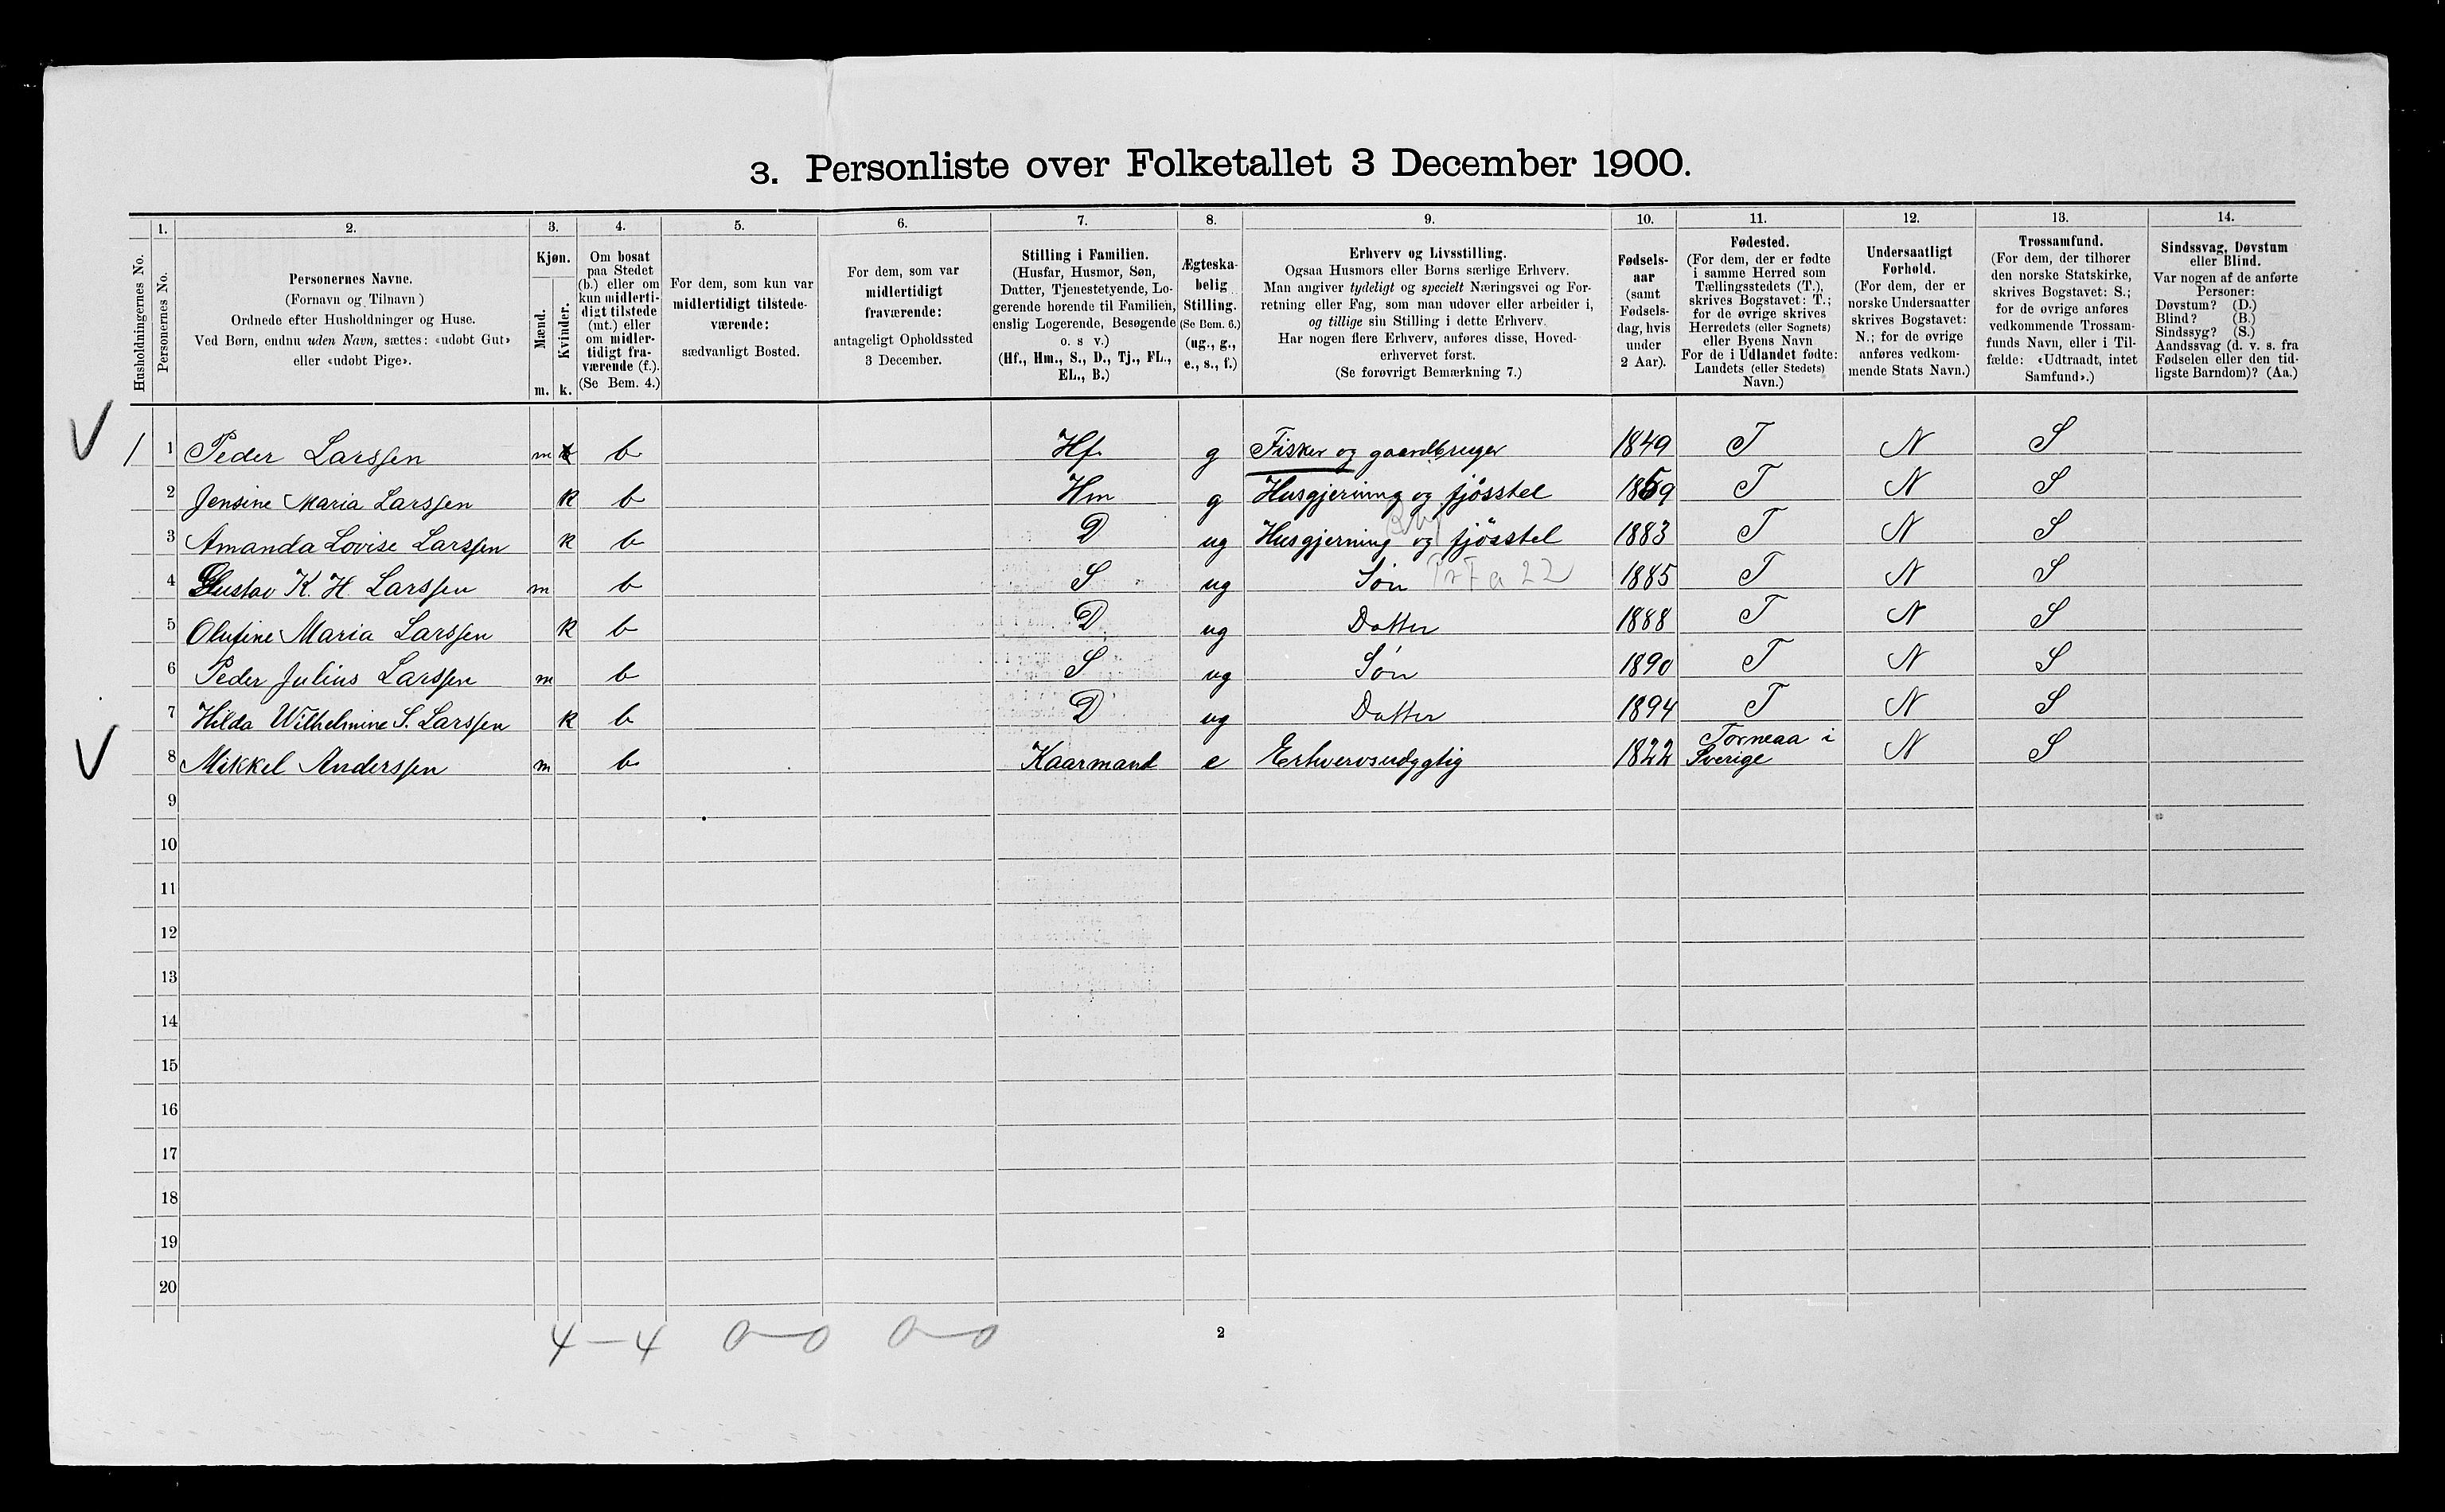 3. Personliste over Folketallet 3 December 1900.
1. 2. 3. 4. 5. 6. 7. 8. 9. 10. 11. 12. 13. 14.
Husholdningernes No.
Personernes No.
Personernes Navne.
(Fornavn og Tilnavn )
Ordnede efter Husholdninger og Huse.
Ved Børn, endnu uden Navn, sættes: «udøbt Gut»
eller «udøbt Pige».
Kjøn.
Mænd.
Kvinder.
m. k.
Om bosat
paa Stedet
(b.) eller om
kun midlerti-
digt tilstede
(mt.) eller
om midler-
tidigt fra-
værende (f.).
(Se Bem. 4.)
For dem, som kun var
midlertidigt tilstede-
værende:
sædvanligt Bosted.
For dem, som var
midlertidigt
fraværende:
antageligt Opholdssted
3 December.
Stilling i Familien.
(Husfar, Husmor, Søn,
Datter, Tjenestetyende, Lo-
gerende hørende til Familien,
enslig Logerende, Besøgende
o. s v.)
(Hf., Hm., S., D., Tj., FL.,
EL., B.)
Ægteska-
belig
Stilling.
(Se Bem. 6.)
(ug., g.,
e., s., f.)
Erhverv og Livsstilling.
Ogsaa Husmors eller Børns særlige Erhverv.
Man angiver tydeligt og specielt Næringsvei og For-
retning eller Fag, som man udøver eller arbeider i,
og tillige sin Stilling i dette Erhverv.
Har nogen flere Erhverv, anføres disse, Hoved-
erhvervet først.
(Se forøvrigt Bemærkning 7.)
Fødsels-
aar
(samt
Fødsels-
dag, hvis
under
2 Aar).
Fødested.
(For dem, der er fødte
i samme Herred som
Tællingsstedets (T.),
skrives Bogstavet: T.;
for de øvrige skrives
Herredets (eller Sognets)
eller Byens Navn
For de i Udlandet fødte:
Landets (eller Stedets)
Navn.)
Undersaatligt
Forhold.
(For dem, der er
norske Undersaatter
skrives Bogstavet:
N.; for de øvrige
anføres vedkom-
mende Stats Navn.)
Trossamfund.
(For dem, der tilhører
den norske Statskirke,
skrives Bogstavet: S.;
for de øvrige anføres
vedkommende Trossam-
funds Navn, eller i Til-
fælde: «Udtraadt, intet
Samfund».)
Sindssvag, Døvstum
eller Blind.
Var nogen af de anførte
Personer:
Døvstum? (D.)
Blind? (B.)
Sindssyg? (S.)
Aandssvag (d. v. s. fra
Fødselen eller den tid-
ligste Barndom)? (Aa.)
1 1 Peder Larssen m b Hf. g Fisker og gaardbruger 1849 T N S
2 Jensine Maria Larssen k b Hm g Husgjerning og fjösstel 1859 T N S
3 Amanda Lovise Larssen k b D ug Husgjerning og fjösstel 1883 T N S
4 Gustav K. H. Larssen m b S ug Søn 1885 T N S
5 Olufine Maria Larssen k b D ug Datter 1888 T N S
6 Peder Julius Larssen m b S ug Søn 1890 T N S
7 Hilda Wilhelmine S. Larssen k b D ug Datter 1894 T N S
8 Mikkel Anderssen m b Kaarmand e Erhvervsudygtig 1822 Torneaa i Sverige N S
9
10
11
12
13
14
15
16
17
18
19
20
4 — 4 0—0 0—0
2